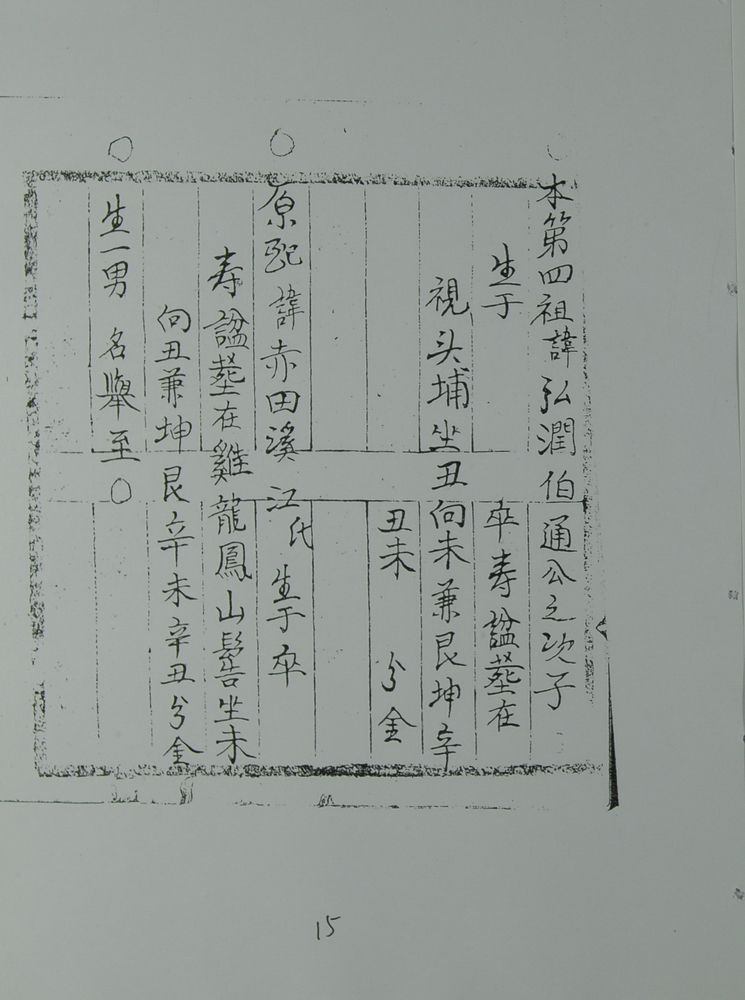 本第四祖諱弘潤伯通公之次子
生于 卒寿諡塟在
視头埔坐丑向未兼艮坤辛
丑未 分金
原配諱赤田溪江氏生于卒
寿諡塟在雞龍鳳山髻坐未
向丑兼坤艮辛未辛丑分金
生一男名舉至〇
15